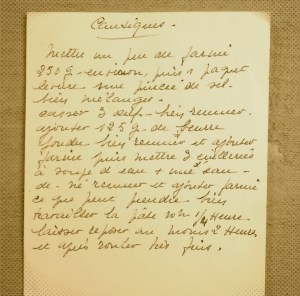 Mettre un peu de farine
250 g environ, puis 1 paquet
levure une pincée de sel
bien mélanger.
casser 3 œufs bien remuer.
ajouter 125 g de beurre
fondu bien remuer et ajouter
farine puis mettre 3 cuillerées
à soupe d'eau +
bien remuer et ajouter farine
ce que peut prendre bien
travailler la pâte 1/4 Heure
laisser reposer au moins 2 Heures
et après rouler très fins.